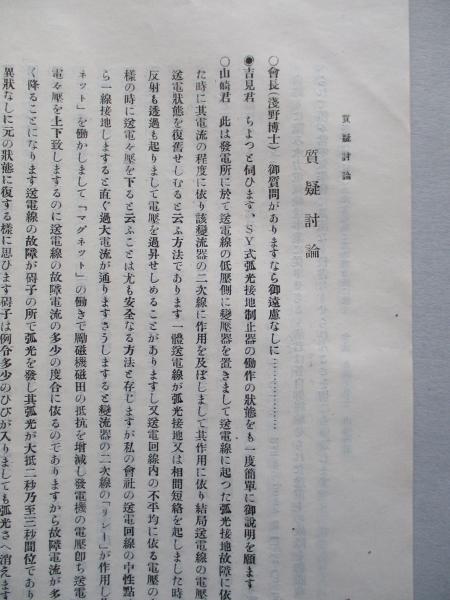 質疑討論
質疑討論
○會長(淺野博士) 御質問がありますなら御遠慮なしに……………
◉吉見君 ちよつと伺ひます、SY式弧光接地制止器の働作の狀態をも一度簡單に御說明を願ます
○山崎君 此は發電所に於て送電線の低壓側に變壓器を置きまして送電線に起つた弧光接地故障に依
た時に其電流の程度に依り該變流器の二次線に作用を及ぼしまして其作用に依り結局送電線の電壓
送電狀態を復舊せしむると云ふ方法であります一體送電線が弧光接地又は相間短絡を起しました時
反射も透過も起りまして電壓を過昇せしめることがありますし又送電回線內の不平均に依る電壓の
樣の時に送電々壓を下ると云ふことは尤も安全なる方法と存じますが私の會社の送電回線の中性點
ら一線接地しますると直ぐ過大電流が通りますさうしますると變流器の二次線の「リレー」が作用し
ネット」を働かしまして「マグネット」の働きで勵磁機磁田の抵抗を增減し發電機の電壓卽ち送電
電々壓を上下致しまするのに送電線の故障電流の多少の度合に依るのでありますから故障電流が多
く降ることになります送電線の故障が碍子の所で弧光を發し其弧光が大抵二秒乃至三秒間位であり
異狀なしに元の狀態に復する樣に思ひます碍子は例令多少のひびが入りましても弧光さへ消えます